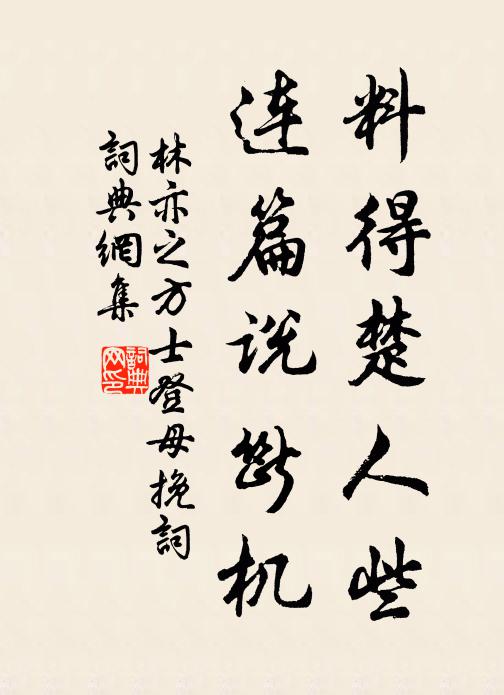 料得楚人些
连篇说断机
林亦之方士登母挽詞
詞典網集
詞典网印